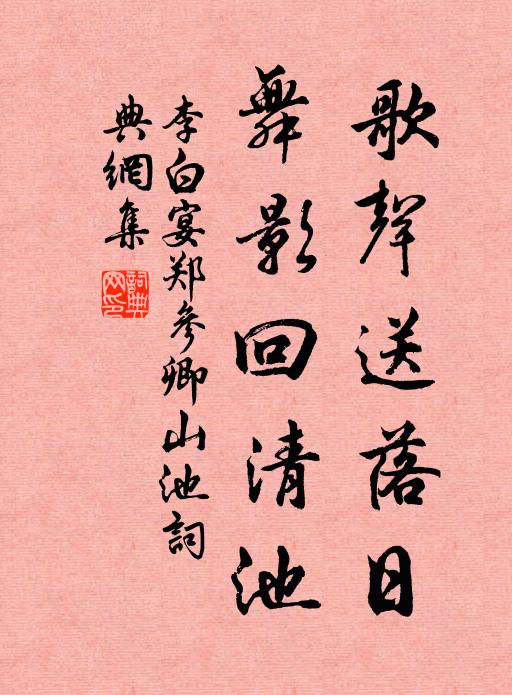 歌聲送落日
舞影回清池
李白宴郑參卿山池詞
典網集
詞典
网印